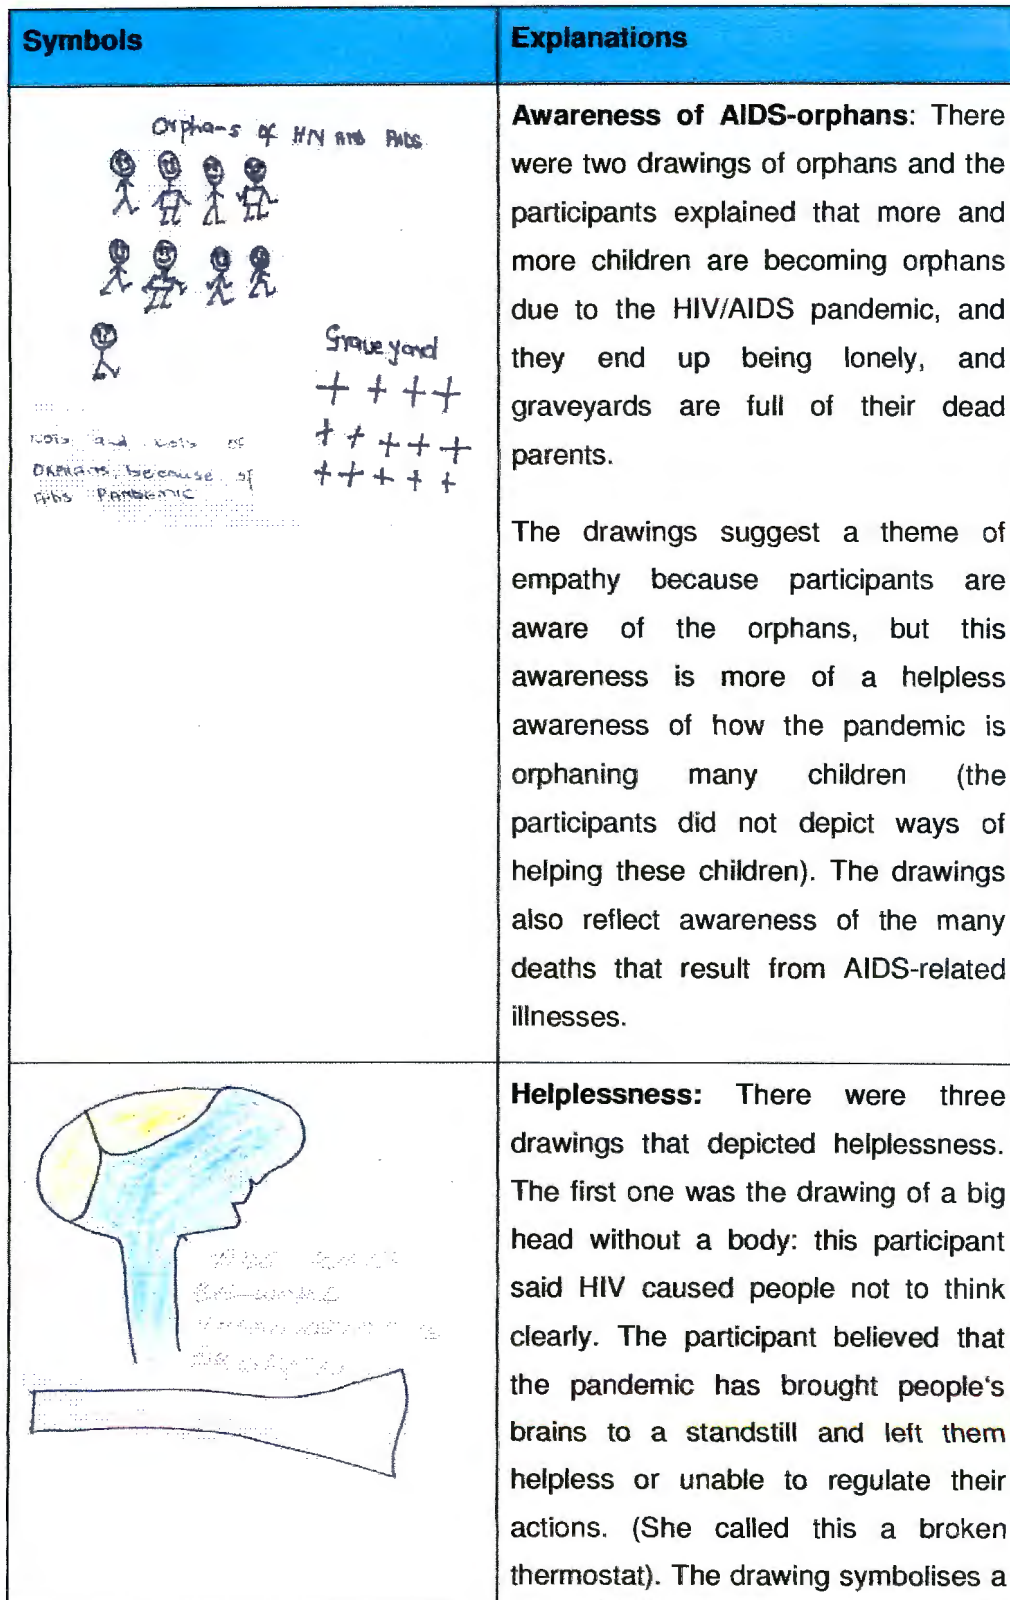 Symbols
Explanations
Orphans of HIV AND AIDS
Graveyard
lots and lots of
ORPHANS, because of
AIDS PANDEMIC
Awareness of AIDS-orphans: There
were two drawings of orphans and the
participants explained that more and
more children are becoming orphans
due to the HIV/AIDS pandemic, and
they end up being lonely, and
graveyards are full of their dead
parents.
The drawings suggest a theme of
empathy because participants are
aware of the orphans, but this
awareness is more of a helpless
awareness of how the pandemic is
orphaning many children (the
participants did not depict ways of
helping these children). The drawings
also reflect awareness of the many
deaths that result from AIDS-related
illnesses.
Helplessness: There were three
drawings that depicted helplessness.
The first one was the drawing of a big
head without a body: this participant
said HIV caused people not to think
clearly. The participant believed that
the pandemic has brought people's
brains to a standstill and left them
helpless or unable to regulate their
actions. (She called this a broken
thermostat). The drawing symbolises a